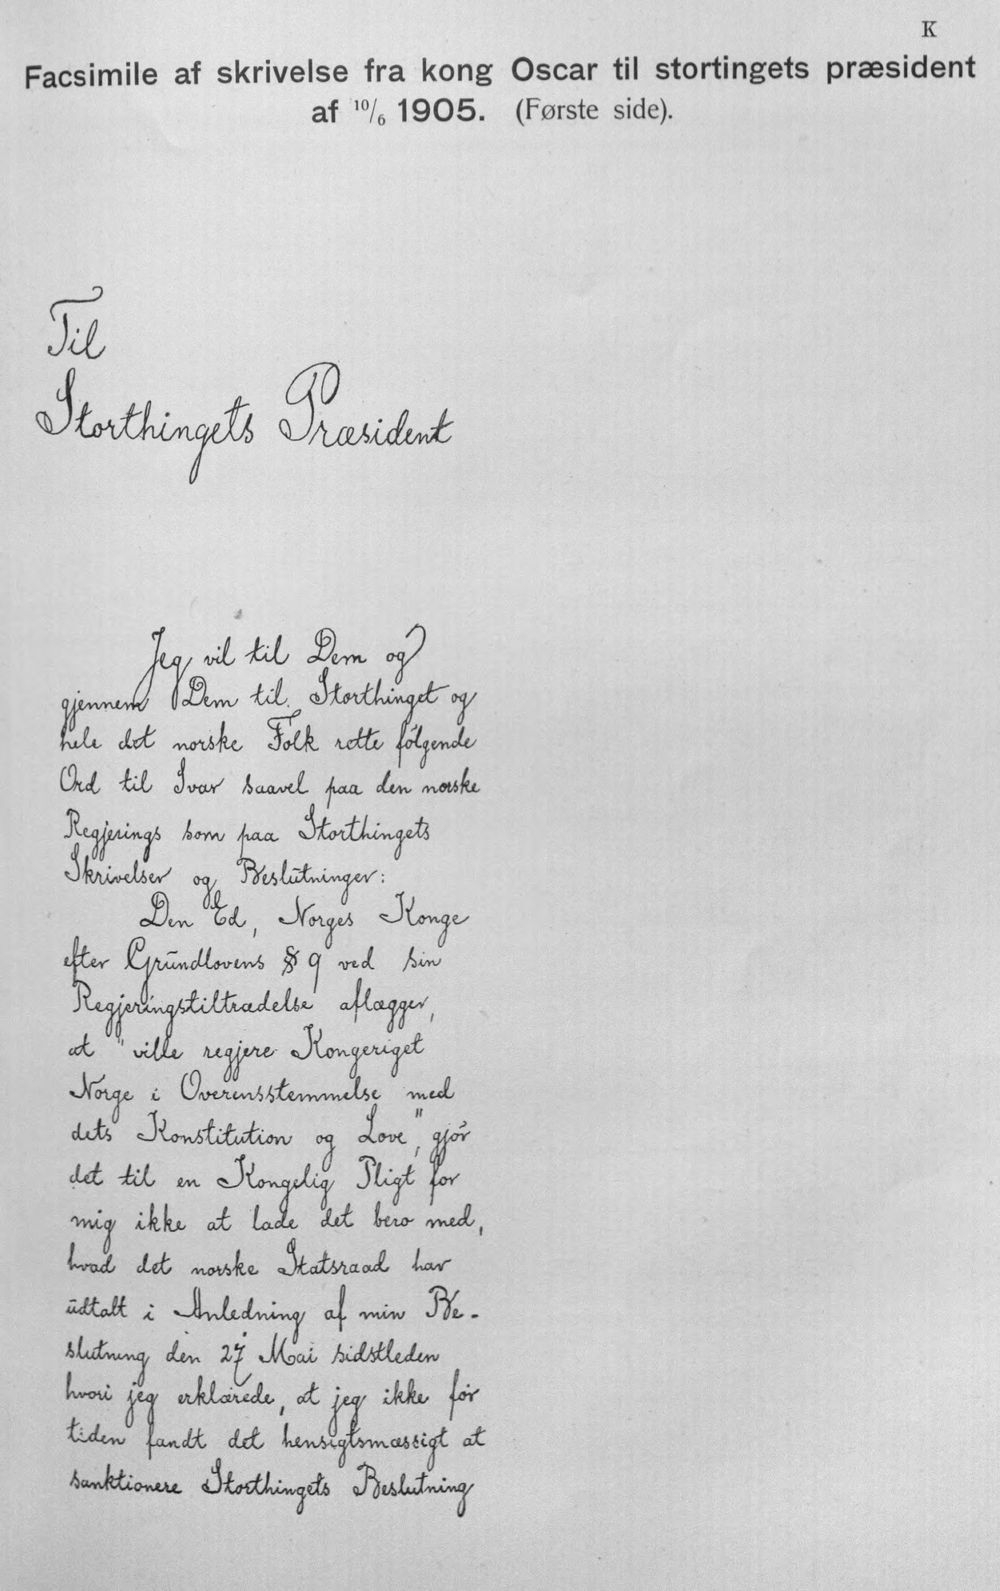 K
Facsimile af skrivelse fra kong Oscar til stortingets præsident
af 10/6 1905. (Første side).
Til
Storthingets Præsident
Jeg vil til Dem og
gjennem Dem til Storthinget og
hele det norske Folk rette følgende
Ord til Svar saavel paa den norske
Regjerings som paa Storthingets
Skrivelser og Beslutninger:
Den Ed, Norges Konge
efter Grundlovens § 9 ved sin
Regjeringstiltrædelse aflægger,
at "ville regjere Kongeriget
Norge i Overensstemmelse med
dets Konstitution og Love", gjør
det til en Kongelig Pligt for
mig ikke at lade det bero med,
hvad det norske Statsraad har
udtalt i Anledning af min Be-
slutning den 27 Mai sidstleden
hvori jeg erklærede, at jeg ikke for
tiden fandt det hensigtsmæssigt at
sanktionere Storthingets Beslutning